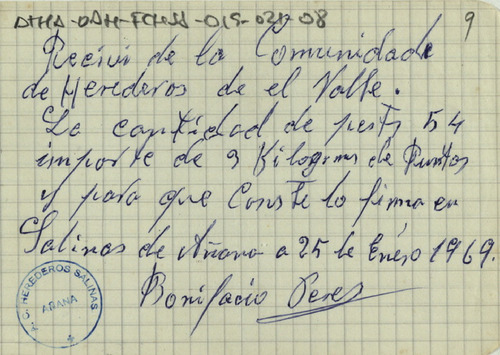 ATHA-DAH-FCHSA-015-021-08
9
Recivi de la Comunidade
de Herederos de el Valle.
La cantidad de pests 54
importe de 3 Kilogrms de Puntas
y para que Conste lo firma en
Salinas de Añana a 25 de Enero 1969.
Bonifacio Peres
HEREDEROS SALINAS
AÑANA